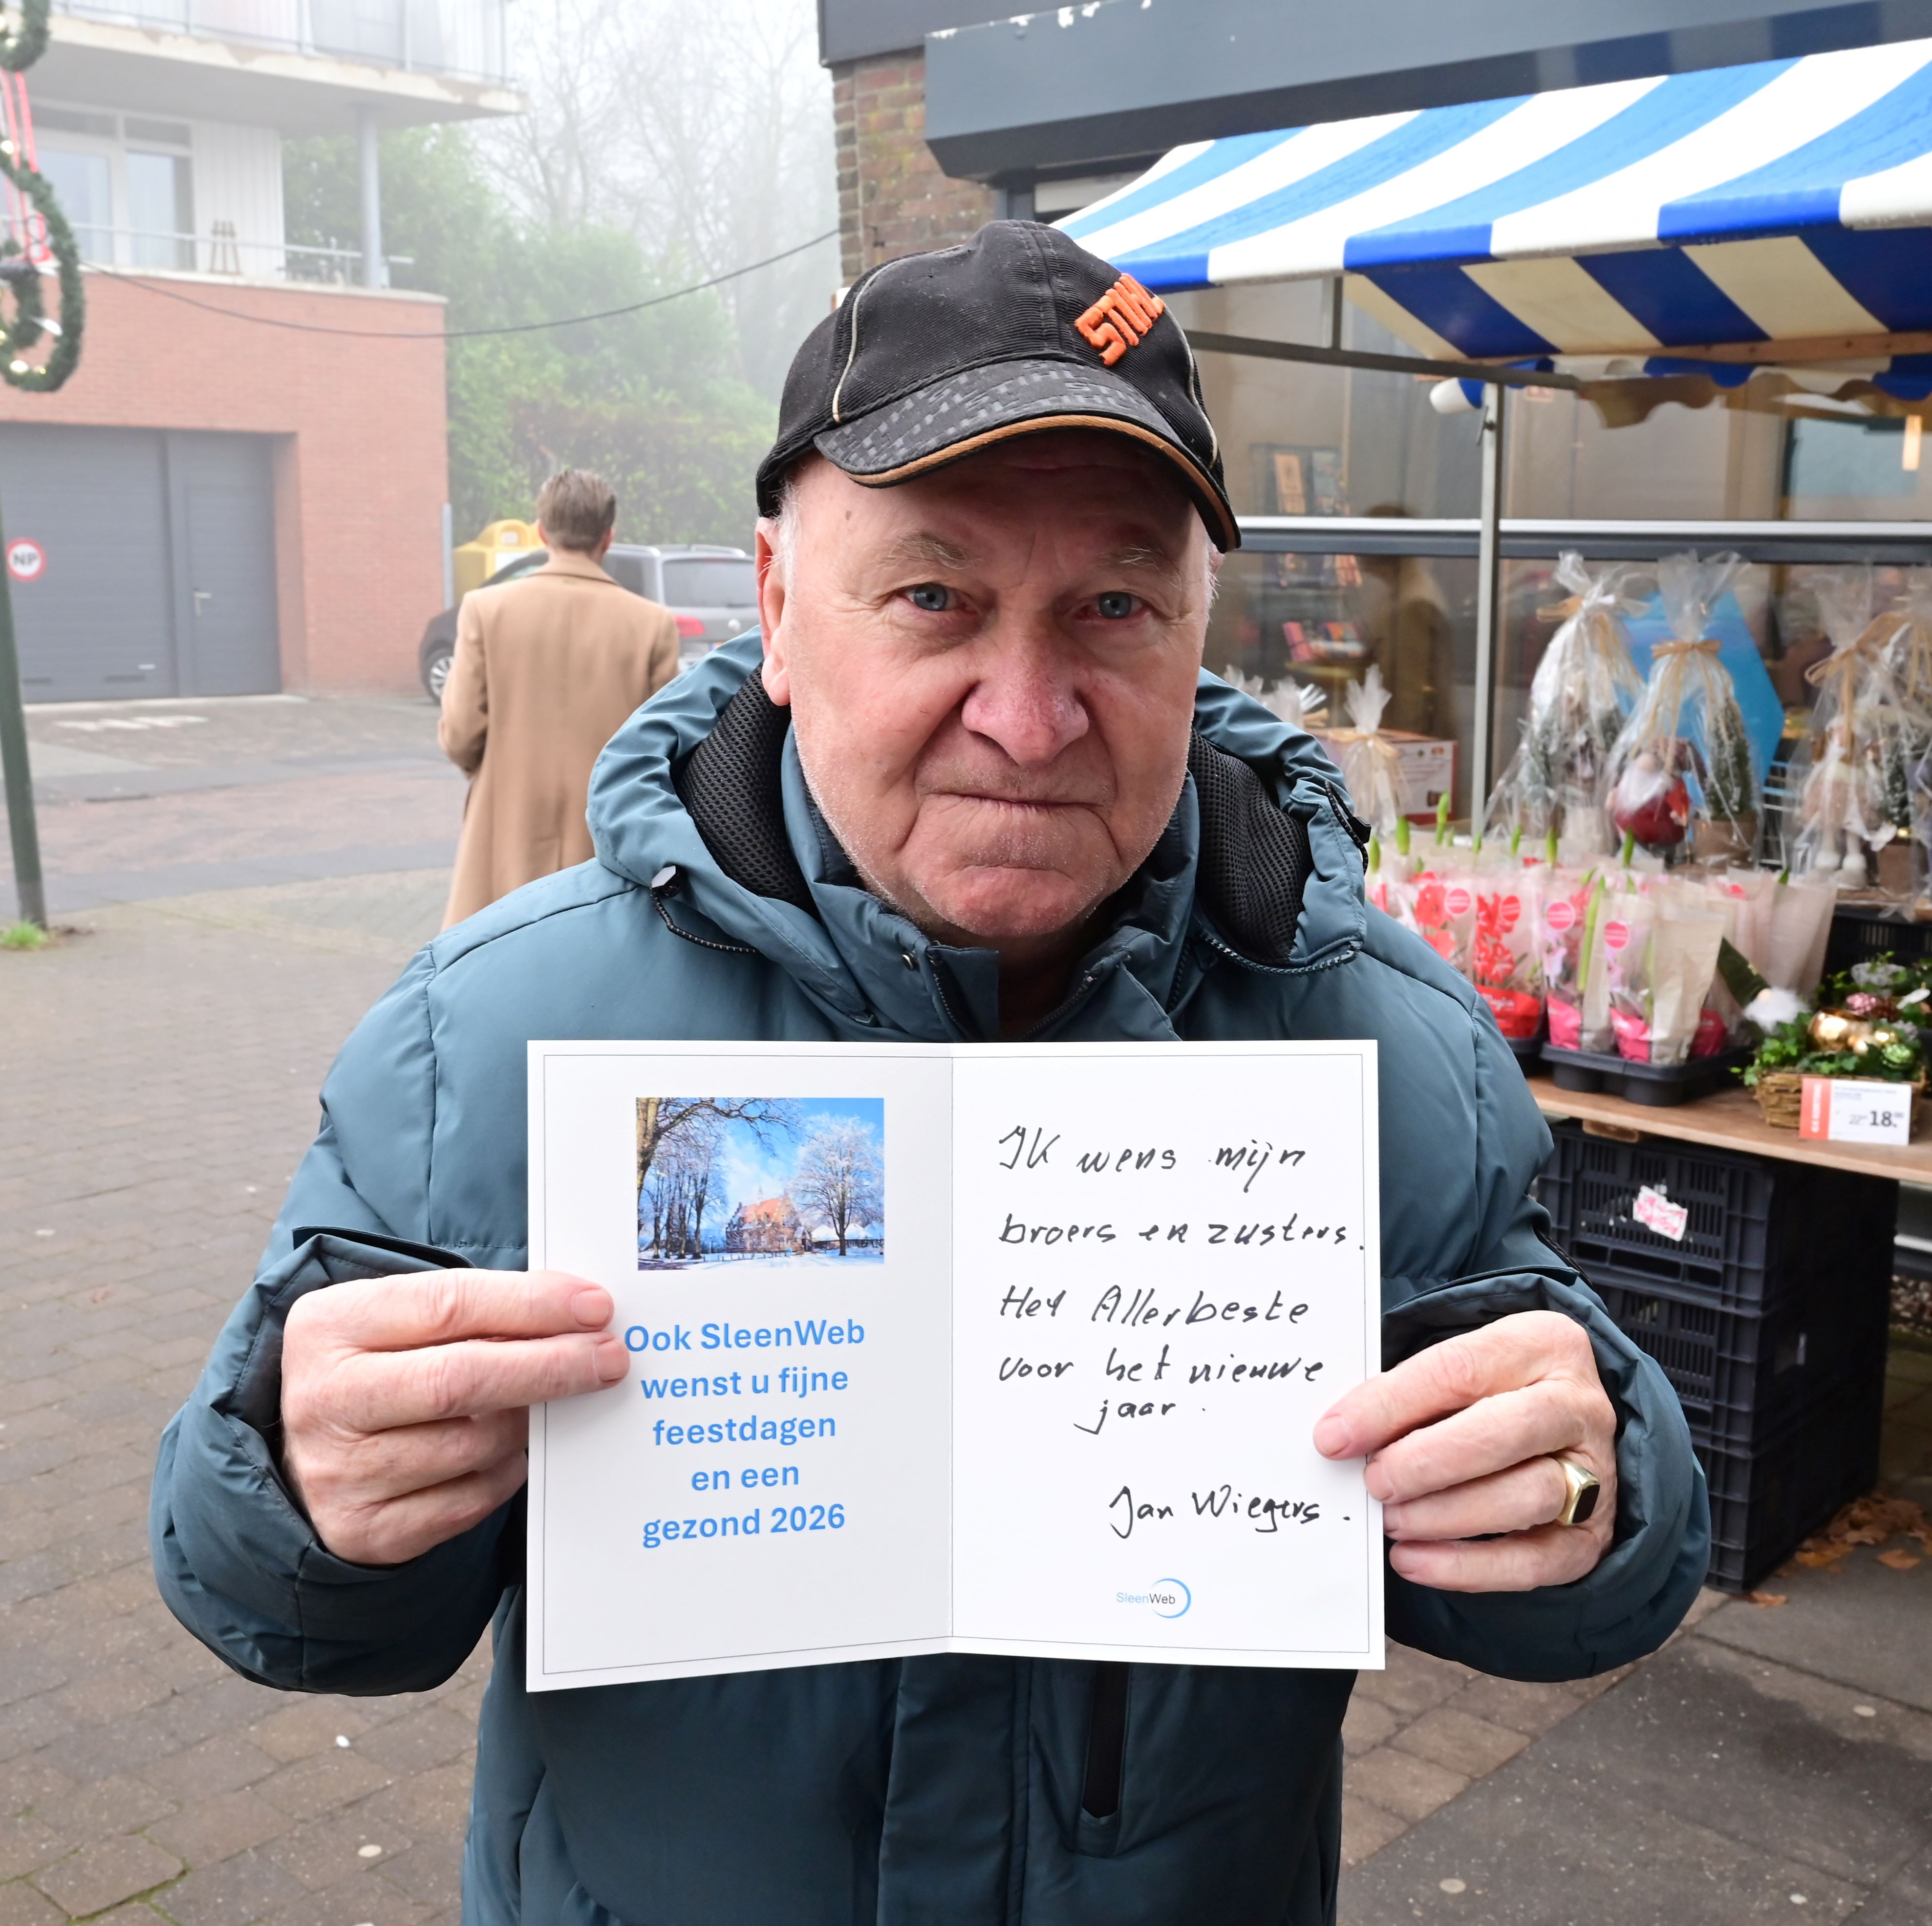 STIHL
NP
Ook SleenWeb
wenst u fijne
feestdagen
en een
gezond 2026
IK wens mijn
broers en zusters.
Het Allerbeste
voor het nieuwe
jaar.
Jan Wiegers.
SleenWeb
18.